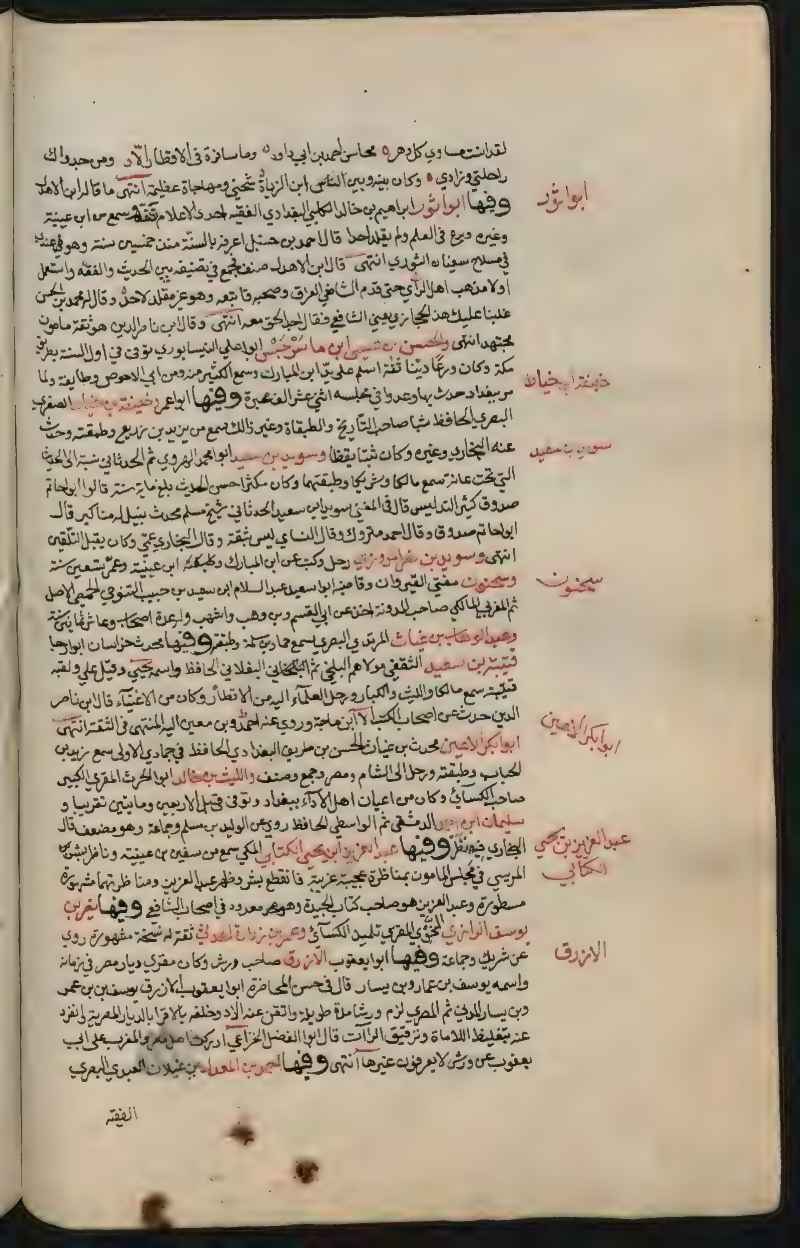 لقد انست مساوي كل دهر ه محاسن احمد بن ابي داود ه وما سافرة في الافطار الّاد ومن جدواك
راحلتي وزادي ه وكان بينه وبين ابن الزياة شحني ومهاجاة عظيمة انتهى ما قاله ابن الاهدل
وفيها ابوا ثور ابراهيم بن خالد الكلبي البغدادي الفقيه احد الاعلام تفقه وسمع من ابن عيينة
وغيره وبرع في العلم ولم يقلد احدا قال احمد بن حنبل اعرفه بالسنّة منذ خمسين سنة وهو عندي
في مسلاح سفيان الثوري انتهى قال ابن الاهدل صنف فجمع في تصنيفه بين الحديث والفقه واستعمل
اولا مذهب اهل الرأي حتى قدم الشافعي العراق وصحبه فاتبعه وهو غير مقلد لاحد وقال له محمد بن الحسن
غلبنا عليك هذا الحجازي يعني الشافعي فقال اجل الحق معه انتهى وقال ابن ناصر الدين هو ثقة مامون
مجتهد انتهى والحسن بن عيسى ابن ماسرجس ابوا علي النيسابوري توفى في اول السنة بطريق
مكة وكان ورعًا دينا ثقة اسلم على يد ابن المبارك وسمع الكثير منه ومن ابي الاحوص وطايفة ولما
مر ببغداد حدث بها وعدوا في مجلسه اثنى عشر الف محبرة وفيها ابوا عمرو خليفة بن خياط العصفري
البصري الحافظ شبابا صاحب التاريخ والطبقاة وغير ذالك سمع من يزيد بن زريع وطبقته وحدث
عنه البخاري وغيره وكان ثبتا يقظا وسويد بن سعيد ابوا محمد الهروي ثم الحدثاني نسبة الى الحديثة
التي تحت عانة سمع مالكا وشريكا وطبقتهما وكان مكثرا حسن الحديث بلغ ماية سنة قال ابوا حاتم
صدوق كثير التدليس قال في المغني سويد ابن سعيد الحدثاني شيخ مسلم محدث بنيل له مناكير قال
ابوا حاتم صدوق وقال احمد متروك وقال النساي ليس بثقة وقال البخاري عمي وكان يقبل التلقين
انتهى وسويد بن نصر المروزي رحل وكتب عن ابن المبارك وطبقته ابن عيينة وعمّر تسعين سنة
وسحنون مفتي القيروان وقاضيها ابوا سعيد عبد السلام ابن سعيد بن حبيب التنوخي الحمصي الاصل
ثم المغربي المالكي صاحب المدونة اخذ عن ابي القسم وبن وهب واشهب وله عدة اصحاب وعاش ثمانين سنة
وعبد الواحد بن غياث المربدي البصري سمع حماد بن سلمة وطبقته وفيها محدث خراسان ابوا رجا
قتيبة بن سعيد الثقفي مولاهم البلخي ثم البغلاني الحافظ واسمه يحيى وقيل علي ولقبه
قتيبة سمع مالكا والليث والكبار ورحل العلمآء اليه من الاقطار وكان من الاغنيآء قال ابن ناصر
الدين حدث عن اصحاب الكتب الا ابن ماجة وروى عنه احمد وبن معين اليه المنتهى في الثقة انتهى
ابوا بكر الاعين محدث بن غياث الحسن بن طريق البغدادي الحافظ في جمادي الاولى سمع زيد بن
الحباب وطبقته ورحل الى الشام ومصر وجمع وصنف والليث بن خالد ابوا الحرث المقري الكبير
صاحب الكسائي وكان من اعيان اهل الآدآء ببغداد وتوفى قبل الاربعين ومايتين تقريبا و
سليمان ابن احمد الدمشقي ثم الواسطي الحافظ روى عن الوليد بن مسلم وجماعة وهو مضعف قال
البخاري فيه نظر وفيها عبد العزيز ابن يحيى الكتاني المكي سمع من سفين بن عيينة وناظر بشر
المريسي في مجلس المامون بمناظرة عجيبة غريبة فانقطع بشر وظهر عبد العزيز ومناظرتهما مشهورة
مسطورة وعبد العزيز هو صاحب كتاب الحيدة وهو معدود في اصحاب الشافعي وفيها نصير بن
يوسف الرازي النحوي المقري تلميذ الكسائي وعمر بن زرارة الحدثي ثقة له نسخة مشهورة روى
عن شريك وجماعة وفيها ابوا يعقوب الازرق صاحب ورش وكان مقري ديار مصر في زمانه
واسمه يوسف بن عمار وبن يسار قال في حسن المحاضرة ابوا يعقوب الازرق يوسف بن عمر
وبن يسار المدني ثم المصري لزم ورشا مدة طويلة واتقن عنه الآد وخلفه بالاقرا بالديار المصرية وانفرد
عنه بتغليظ اللاماة وترقيق الرآآت قال ابوا الفضل الخزاعي ادركت اهل مصر والمغرب على ابي
يعقوب عن ورش لا يعرفون غيرها انتهى وفيها احمد بن المعدل بن غيلان العبدي البصري
الفقيه
ابوا ثور
خليفة ابن خياط
سويد بن سعيد
سحنون
ابوا بكر الاعين
عبد العزيز بن يحيى
الكتاني
الازرق